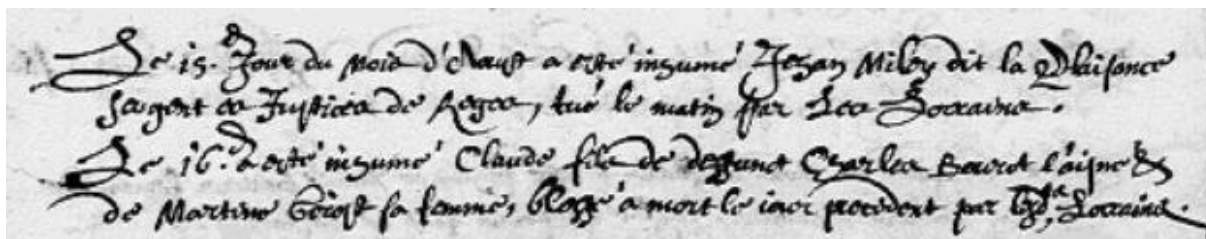 Le 15.e Jour du mois d'Aoust a esté inhumé Jehan Miley dit la Plaisance
sergent es Justices de Reges, tué le matin par Les Lorrains.
Le 16.e a esté inhumé Claude fils de deffunct Charles l'aisné &
de Martine sa femme, blessé à mort le jour précédent par Lorrains.